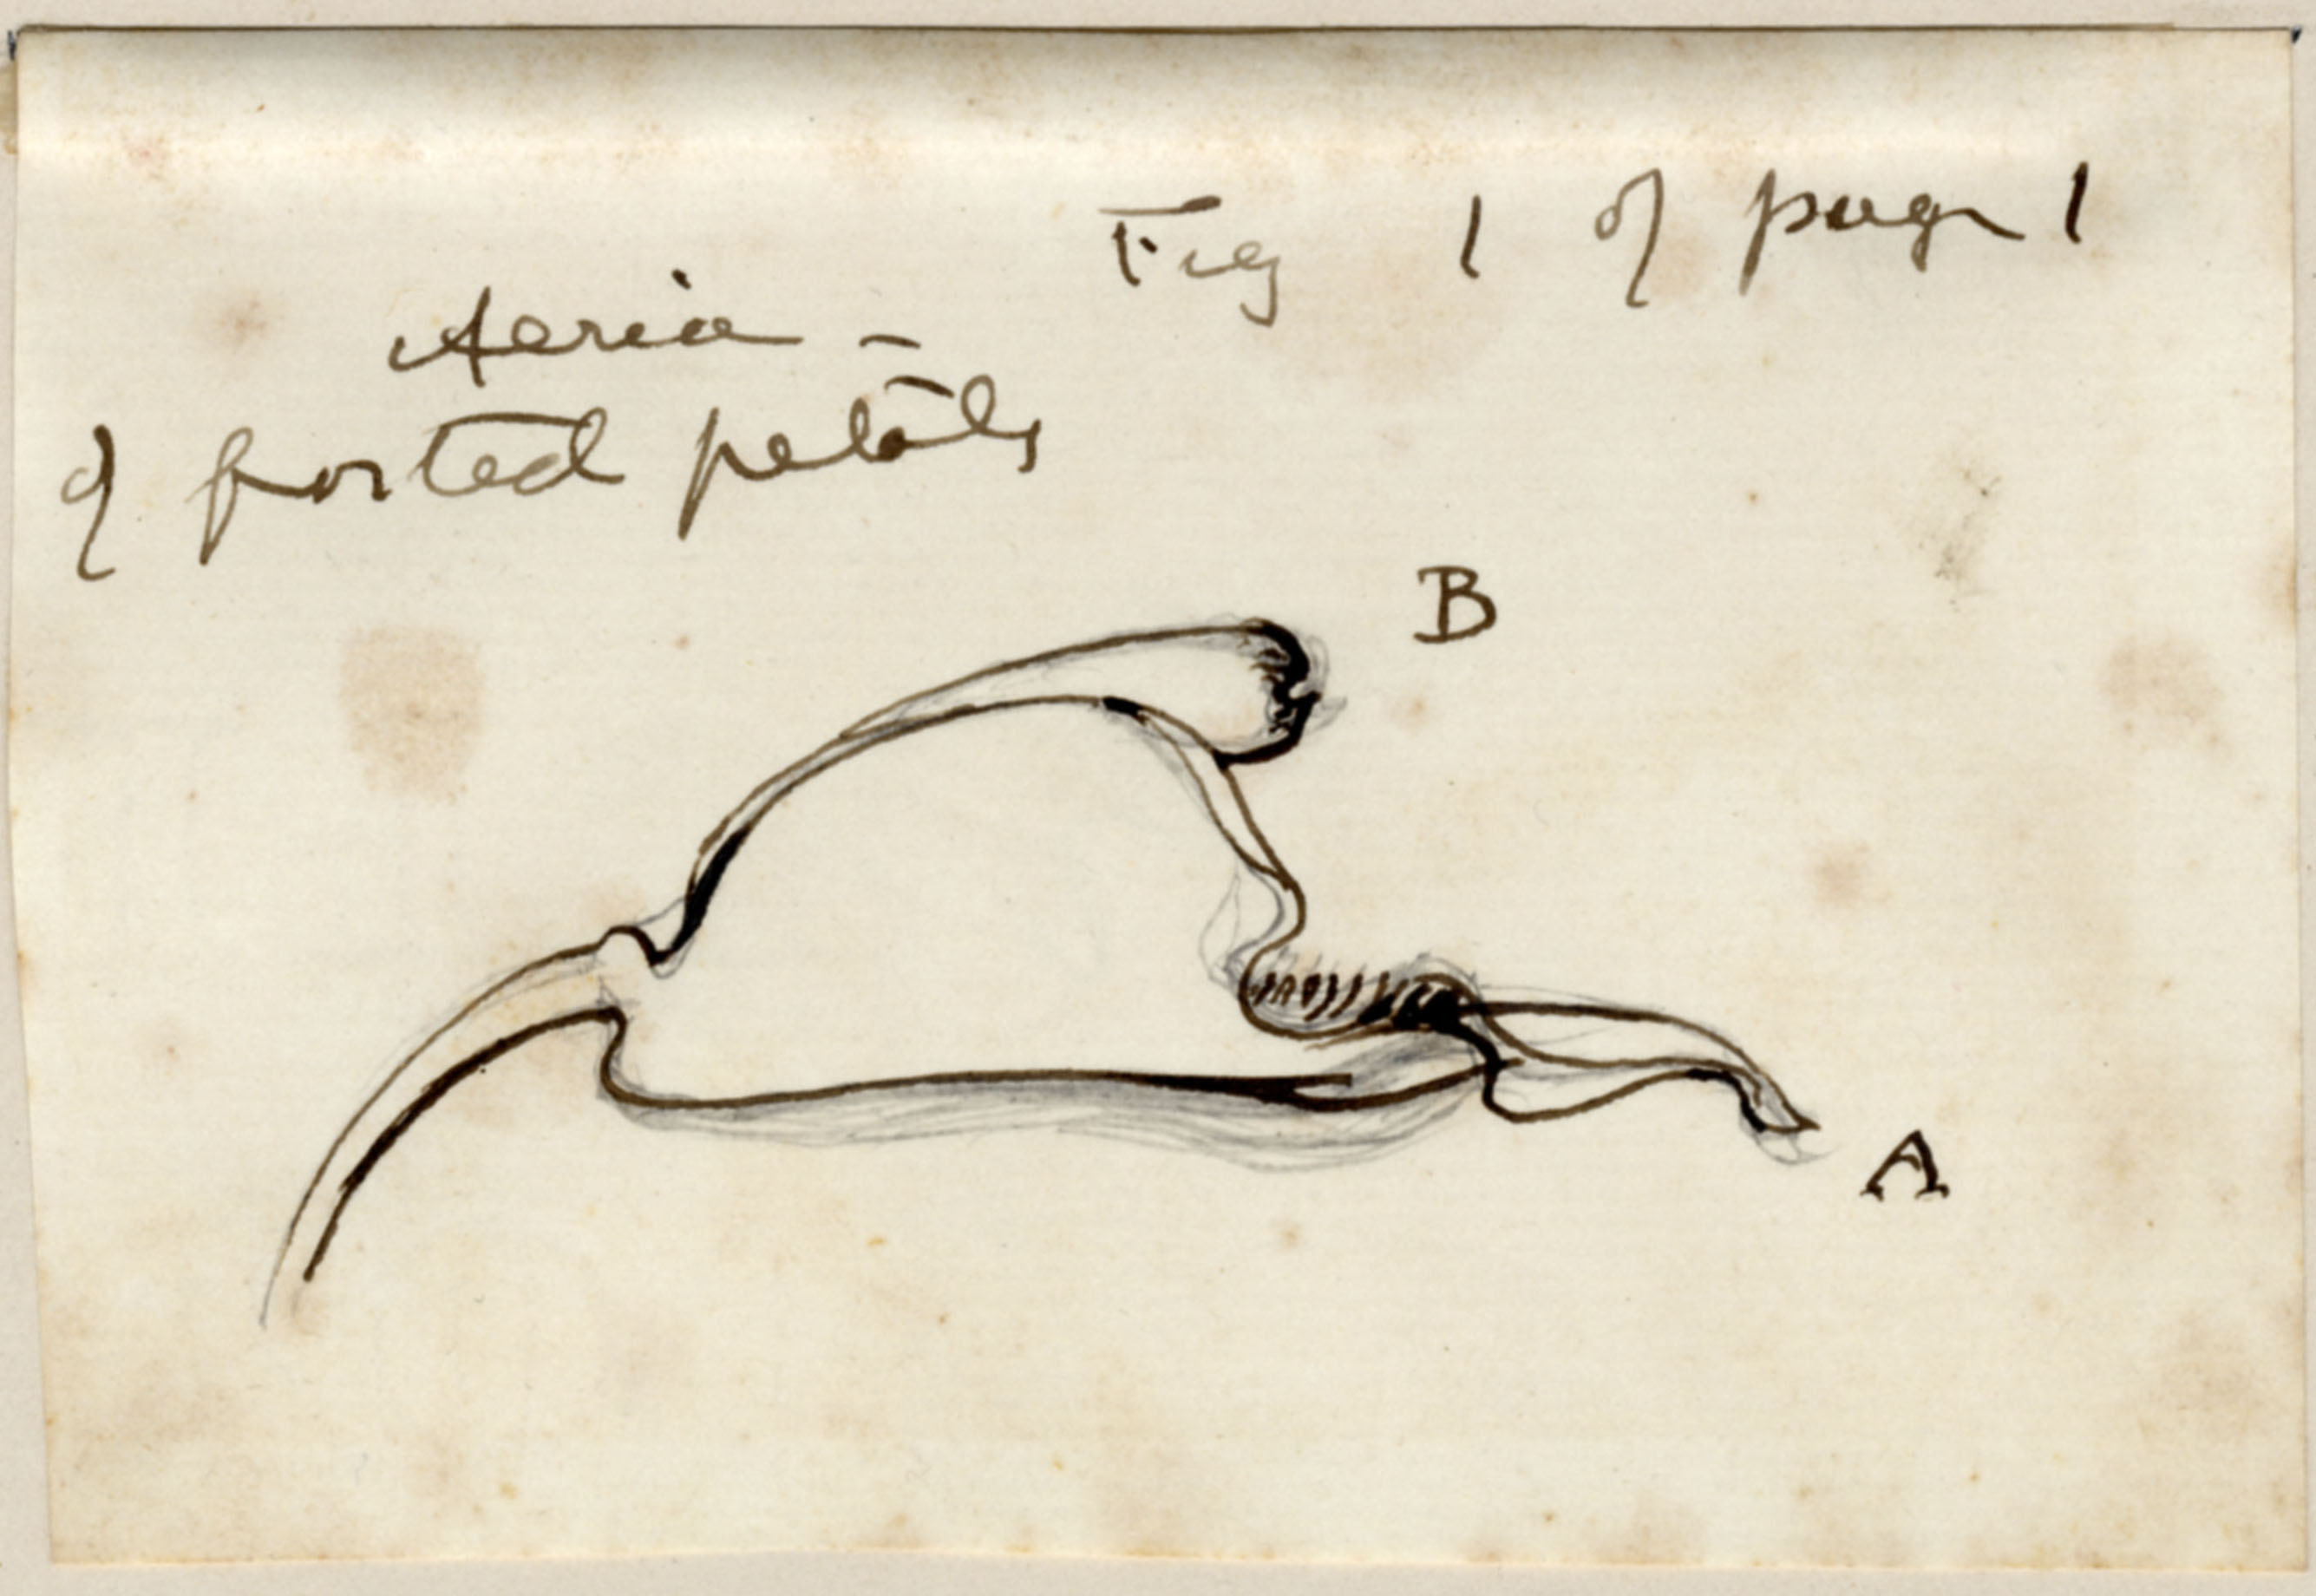 Fig 1 of page 1
Aeria -
of frosted petals
B
A